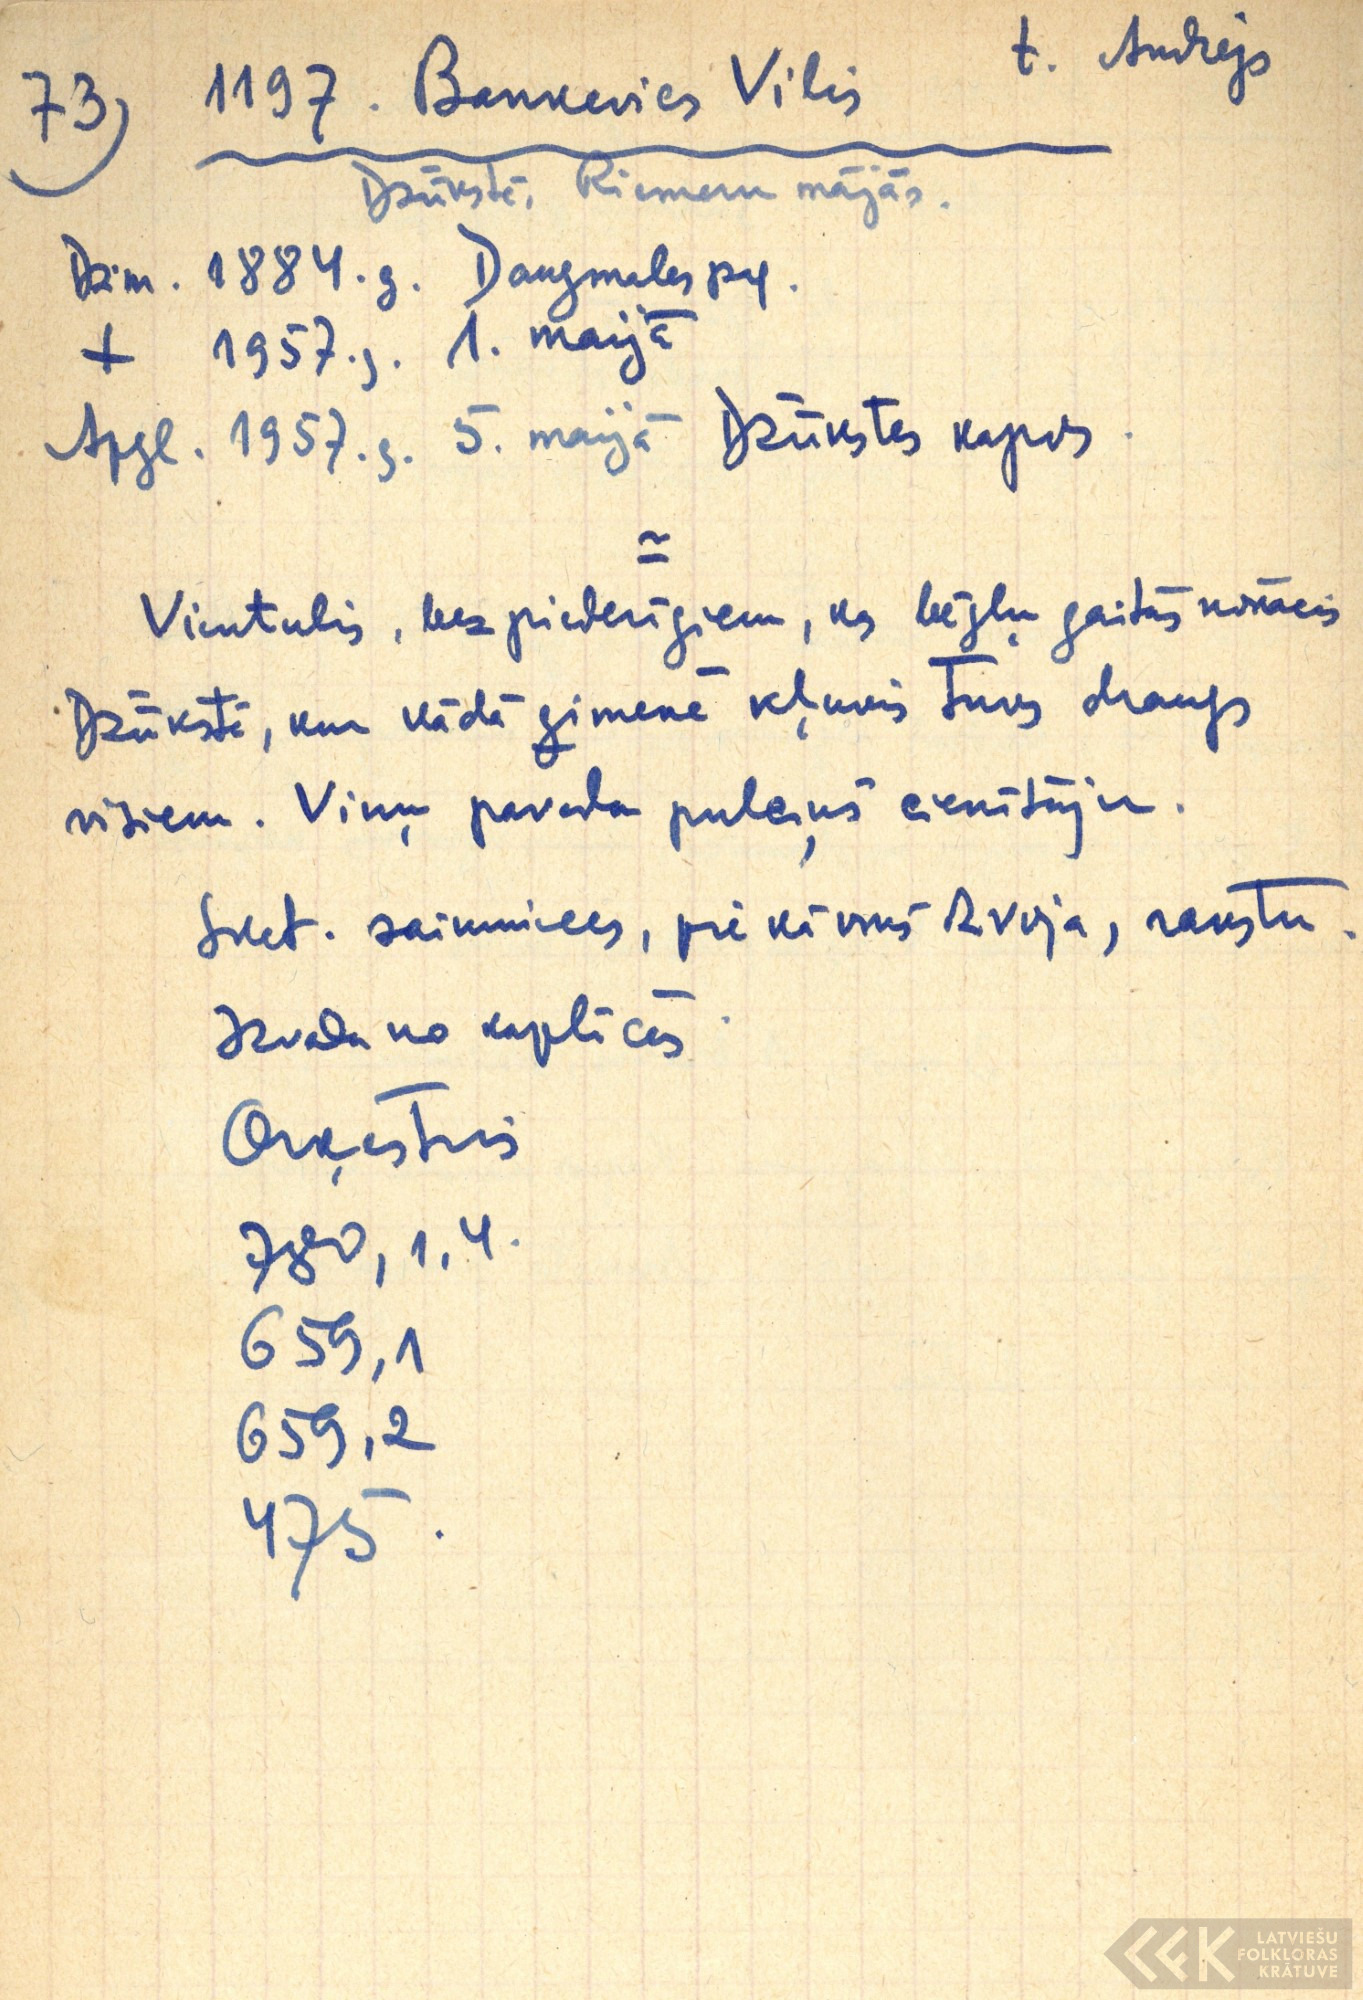 73) 1197. Bankevics Vilis t. Andrejs
Džūkstē, Riemeru mājās.
Dzim. 1884.g. Daugmales pg.
+ 1957.g. 1. maijā
Apgl. 1957.g. 5. maijā Džūkstes kapos.
Vientulis, bez piederīgiem, kas bēgļu gaitās nonācis
Džūkstē, kur kādā ģimenē kļuvis tuvs draugs
visiem. Viņu pavada pulciņš cienītāju.
Skat. saimnieces, pie kā viņš dzīvoja, rakstu.
Izvada no kaplicas.
Orķestris
780, 1, 4.
659, 1
659, 2
475.
LATVIEŠU
FOLKLORAS
KRĀTUVE